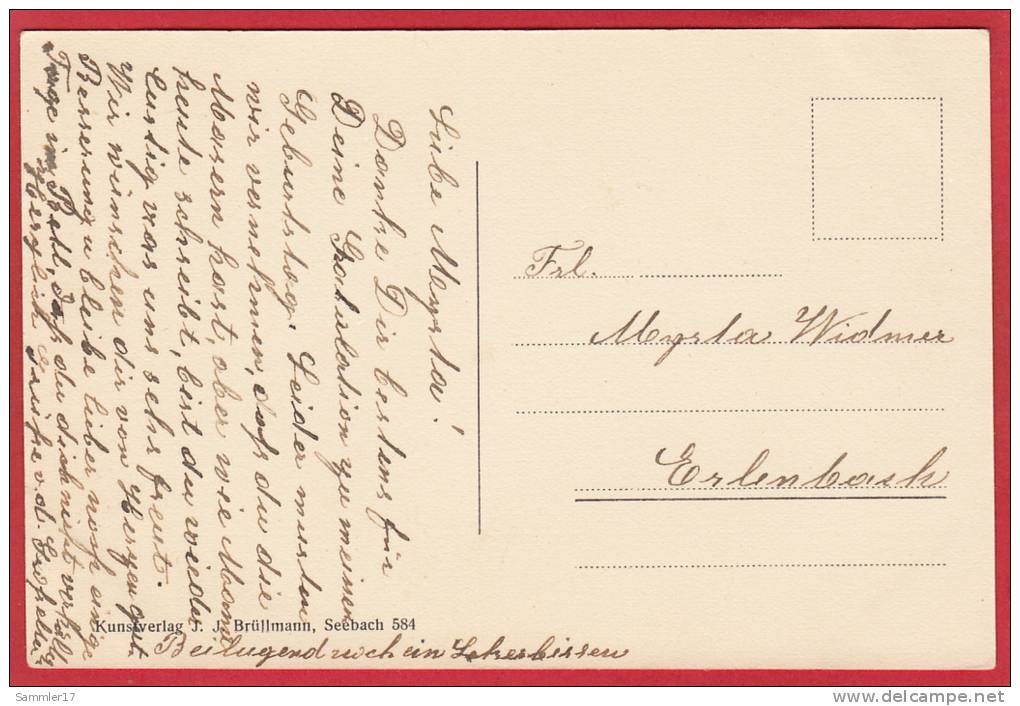 Liebe Myrta!
Danke Dir bestens für
Deine Gratulation zu meinem
Geburtstag. Leider mussten
wir vernehmen, dass du die
Masern hast, aber wie Mami
heute schreibt, bist du wieder
lustig was uns sehr freut.
Wir wünschen dir von Herzen gut.
Besserung u. bleibe lieber noch einige
Tage im Bett, dass du dich nicht verkält.
Herzlich Grüsse v. d.
Beilugend noch ein Lekerbissen
Frl.
Myrta Widmer
Erlenbach
Kunstverlag J. J. Brüllmann, Seebach 584
Sammler17
www.delcampe.net